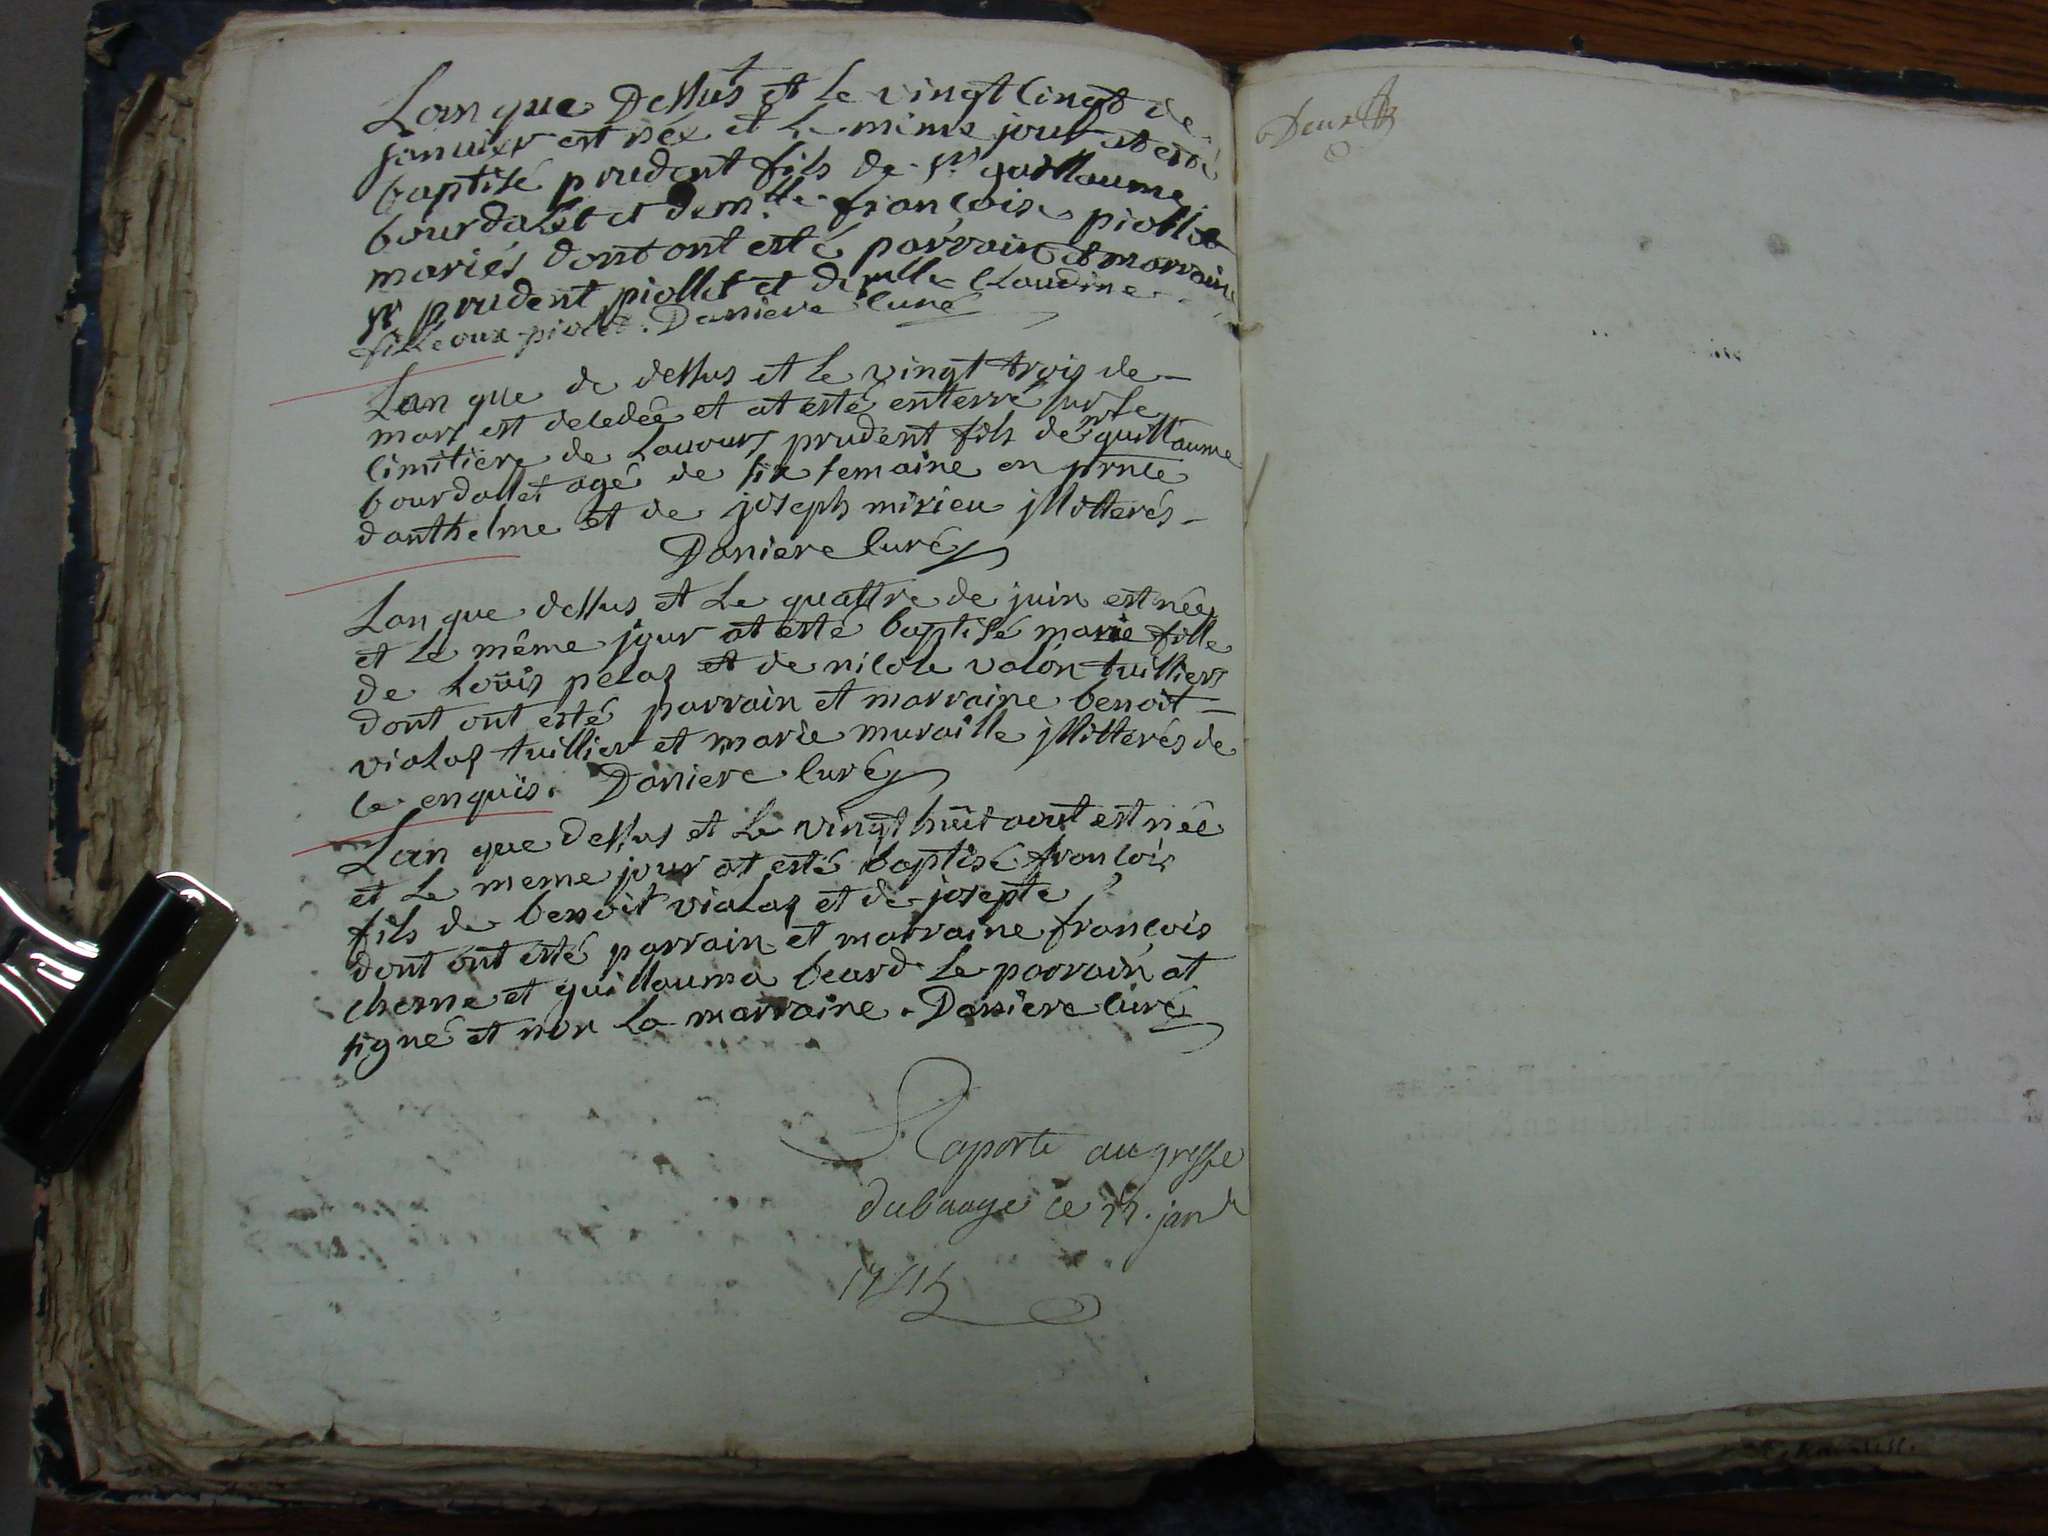 Lan que Dessus et le vingt cinqt de
januier est née et le mime jour at esté
baptisé prudent fils de Sr. guillaume
bourdallet et de mlle. françoise piollet
mariés dont ont esté parrain et marraine
sr prudent piollet et de mlle Claudine
fille aux piollet. Daniere Curé
Lan que de dessus et le vingt trois de
mars est decedée et at esté enterré sur le
cimitiere de Lavours prudent fils de mr guillaume
bourdallet agé de six semaine en prnce
danthelme et de joseph mirieu jllitterés
Daniere Curé
Lan que dessus et le quattre de juin est née
et le même jour at esté baptisé marie fille
de Louis pelaz et de nicole valon tuilliers
dont ont esté parrain et marraine benoit
vialaz tuillier et marie muraille jllitterés de
ce enquis. Daniere Curé
Lan que dessus et le vingt huit aout est née
et le meme jour at esté baptisé françois
fils de benoit vialaz et de josepte
dont ont esté parrain et marraine françois
cherne et guillauma beard le parrain at
signé et non la marraine. Daniere curé
Raporté au greffe
du baage ce janr
Deux